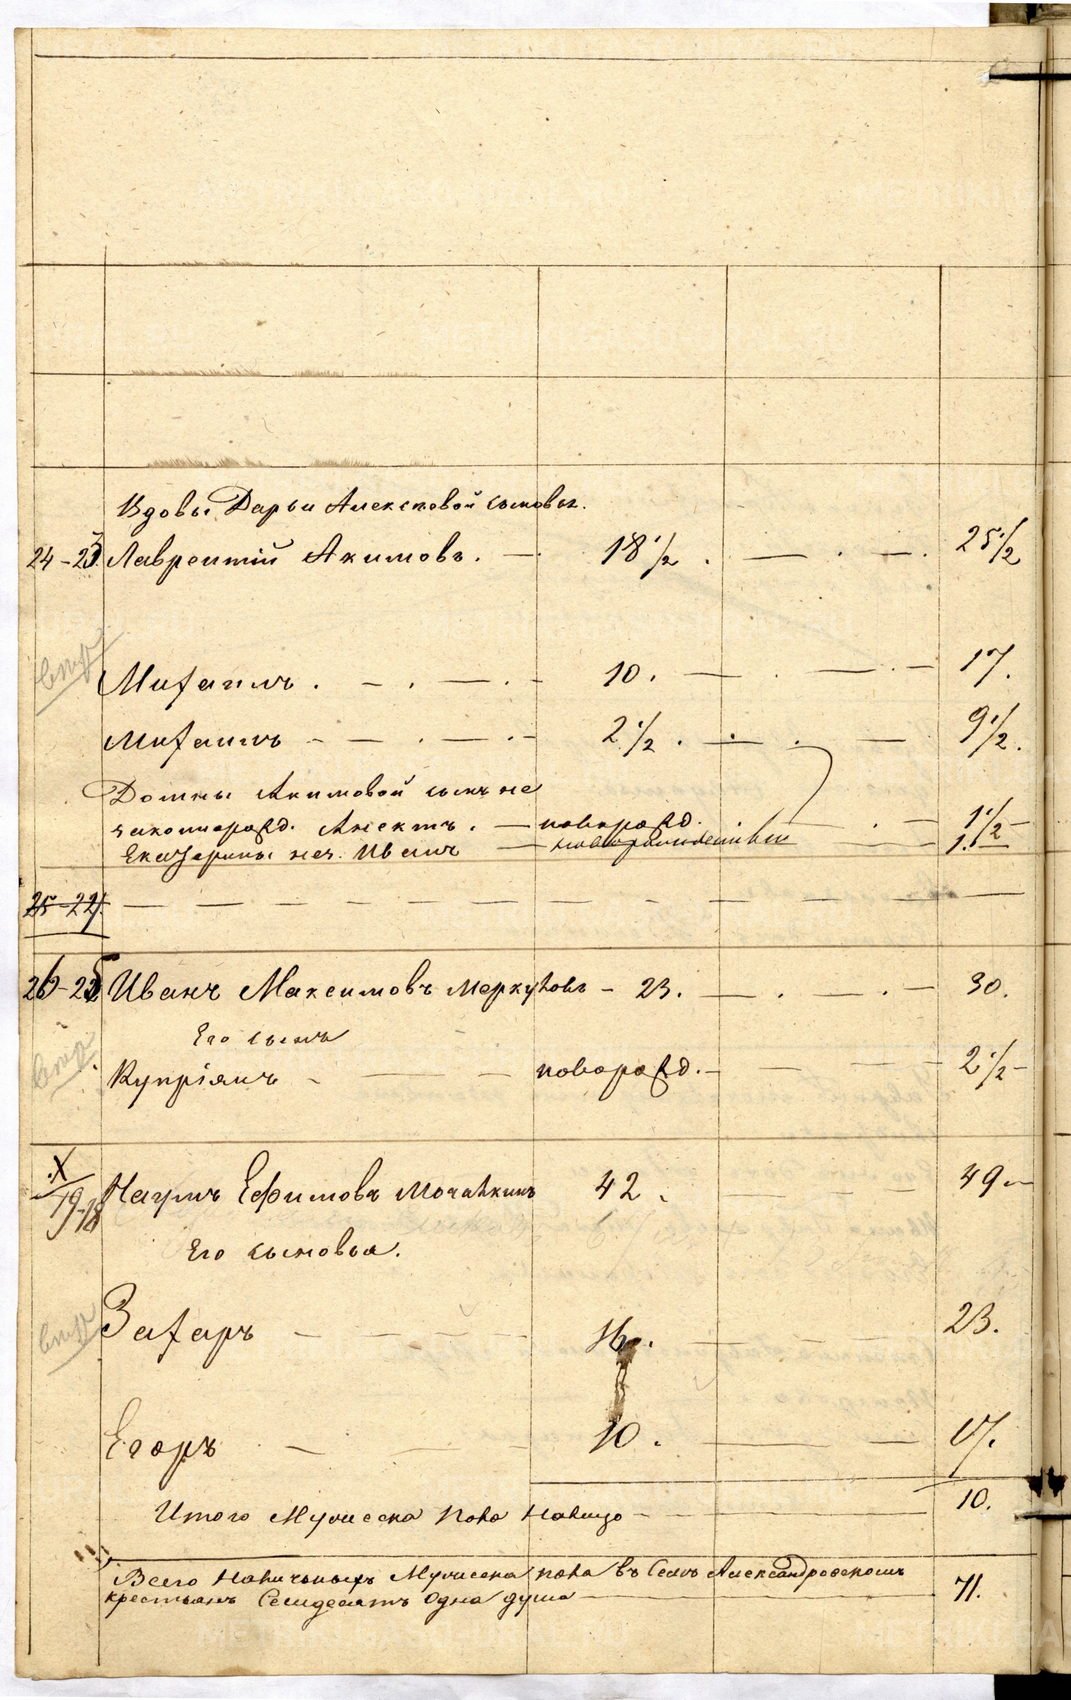 Вдовы Дарьи Алексѣевой сыновья.
24-23 Лаврентій Акимовъ. — 18 1/2 . — . — . 25 1/2
Михаилъ . — . — . — 10. — . — . — 17.
Михаилъ — — . — . — 2 1/2 . — . — 9 1/2.
Домны Акимовой сынъ не
законнорожд. Анектъ. — новорожд. — . — 1 1/2 —
Екатерины нез. Иванъ — новорожденный — 1 1/2
25-24 — — — — — — — — — —
26-25 Иванъ Максимовъ Меркуловъ — 23. — . — . — 30.
Его сынъ
Купріянъ — — — новорожд. — — — 2 1/2 —
X
19-18 Наумъ Ефимовъ Мочалкинъ 42. — — — 49 —
Его сыновья.
Захаръ — — — — 16. — — — 23.
Егоръ — — — 10. — — 17.
Итого Мужеска пола налицо — — — 10.
Всего наличныхъ Мужеска пола въ Селѣ Александровскомъ
крестьянъ Семдесятъ одна душа — 71.